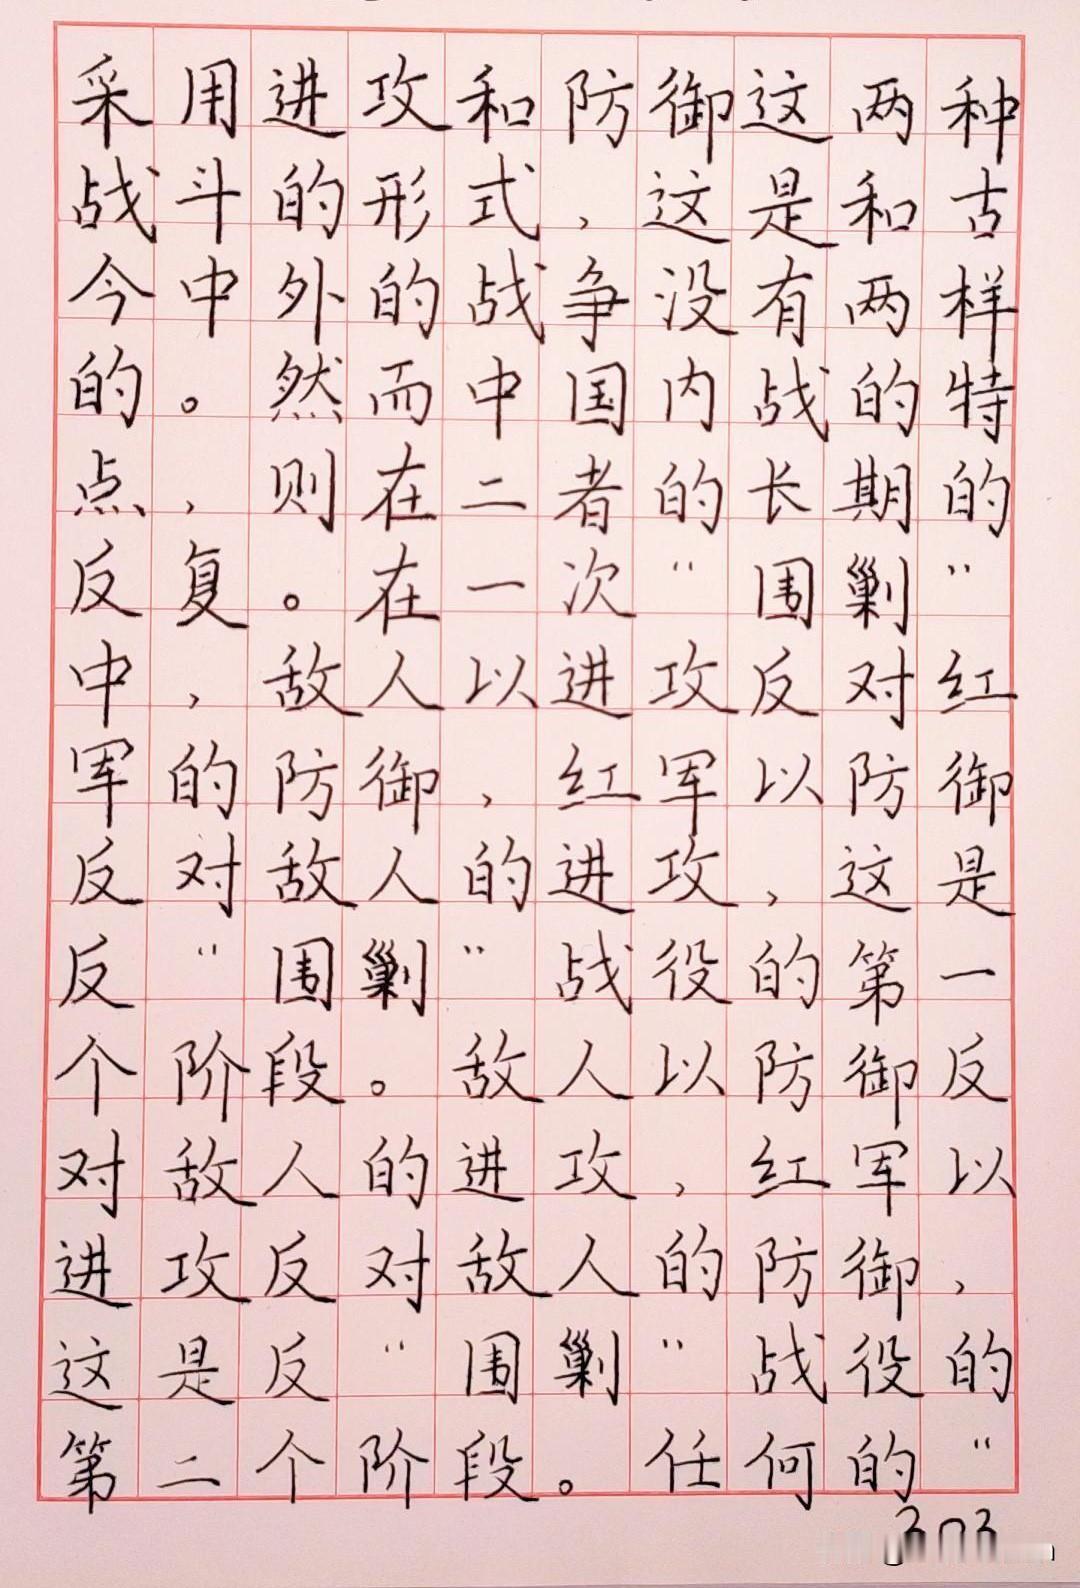 采用进攻和防御这两种
战斗的形式，这是和古
今中外的战争没有两样
的。然而中国内战的特
点，则在二者的长期的
反复。在一次“围剿”
中，敌人以进攻反对红
军的防御，红军以防御
反对敌人的进攻，这是
反“围剿”战役的第一
个阶段。敌人以防御反
对敌人的进攻，红军以
进攻反对敌人的防御，
这是反“围剿”战役的
第二个阶段。任何的“
303